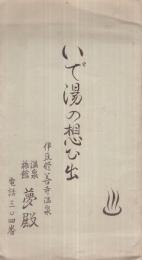 いで湯の想ひ出
伊豆修善寺温泉
温泉旅館 夢殿
電話三〇四番